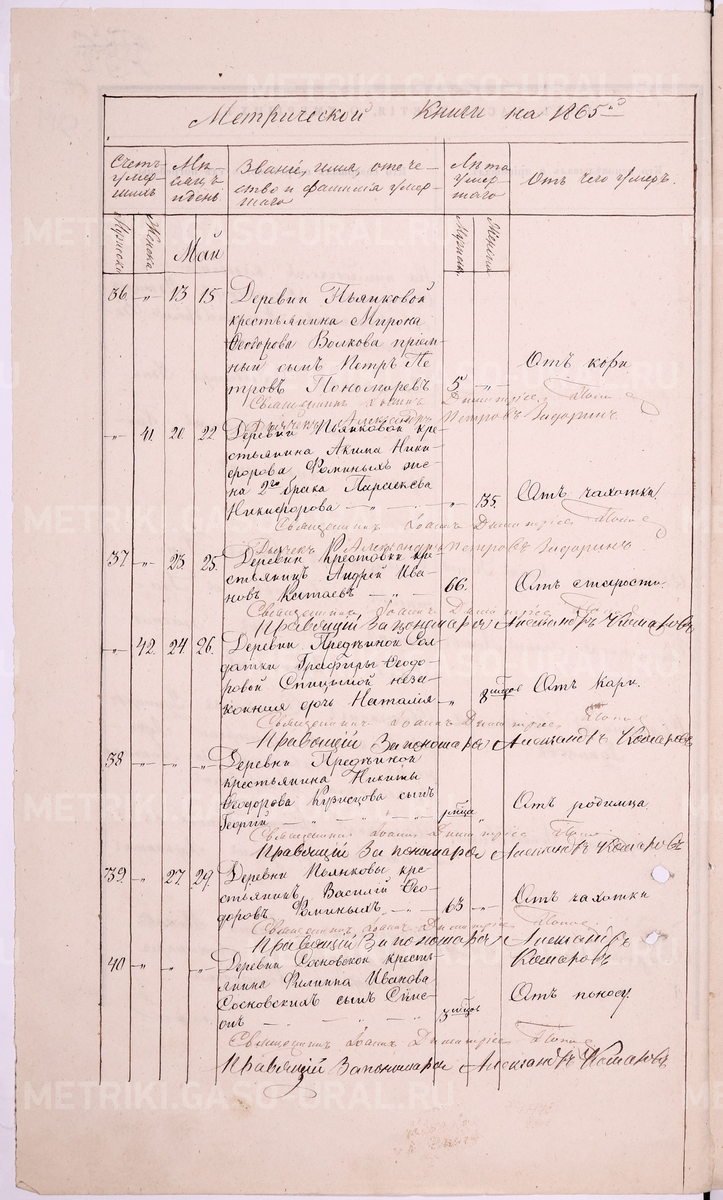 Метрической Книги на 1865й
Счетъ умершихъ
Мѣсяцъ и день
Званіе, имя, отчество и фамилія умершаго
Лѣта умершаго
Отъ чего умеръ.
Мужска
Женска
Май
Мужск.
Женска
36 „ 13 15 Деревни Пьянковой
крестьянина Мирона
Ѳеодорова Волкова пріем-
ный сынъ Петръ Пе- Отъ кори
тровъ Пономаревъ 5 „
Священникъ Іоаннъ Димитріевъ Поповъ
Дьячекъ Александръ Петровъ
„ 41. 20. 22 Деревни Пьянковой кре-
стьянина Акима Ники-
форова Фоминыхъ же-
на 2го брака Параскева Отъ чахотки
Никифорова „ 35.
Священникъ Іоаннъ Димитріевъ Поповъ
Дьячекъ Александръ Петровъ
37 „ 23. 25. Деревни Крестовки кре-
стьянинъ Андрей Ива- Отъ старости.
новъ 66. „
Священникъ Іоаннъ Димитріевъ Поповъ
Правящій За пономаря Александръ Комаровъ
„ 42. 24. 26. Деревни Предъиной Сол-
датки Глафиры Ѳеодо-
ровой Спицыной неза-
конная дочь Наталія „ Отъ Кари.
Священникъ Іоаннъ Димитріевъ Поповъ
Правящій За пономаря Александръ Комаровъ
38 „ „ „ Деревни Предъиной
крестьянина Никиты
Ѳеодорова Кузнецова сынъ Отъ родимца
Георгій „
Священникъ Іоаннъ Димитріевъ Поповъ
Правящій За пономаря Александръ Комаровъ
39. „ 27. 29. Деревни Пьянковы кре-
стьянинъ Василій Ѳео- Отъ чахотки
доровъ Фоминыхъ 63 „
Священникъ Іоаннъ Димитріевъ Поповъ
Правящій За пономаря Александръ
Комаровъ
40 „ „ „ Деревни Сосновской кресть-
янина Филиппа Иванова
Сосновскихъ сынъ Симе- Отъ поносу.
онъ
Священникъ Іоаннъ Димитріевъ Поповъ
Правящій За пономаря Александръ Комаровъ
METRIKI.GASO-URAL.RU